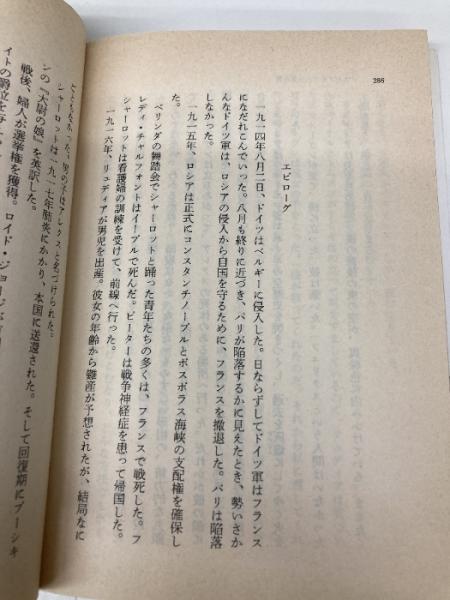 286
エピローグ
一九一四年八月二日、ドイツはベルギーに侵入した。日ならずしてドイツ軍はフランス
になだれこんでいった。八月も終りに近づき、パリが陥落するかに見えたとき、勢いさか
んなドイツ軍は、ロシアの侵入から自国を守るために、フランスを撤退した。パリは陥落
しなかった。
一九一五年、ロシアは正式にコンスタンチノープルとボスポラス海峡の支配権を確保し
た。
ベリンダの舞踏会でシャーロットと踊った青年たちの多くは、フランスで戦死した。フ
レディ・チャルフォントはイープルで死んだ。ピーターは戦争神経症を患って帰国した。
シャーロットは看護婦の訓練を受けて、前線へ行った。
一九一六年、リュディアが男児を出産。彼女の年齢から難産が予想されたが、結局なに
ごともなかった。男の子はアレクスと名づけられた。
シャーロットは一九一七年肺炎にかかり、本国に送還された。そして回復期にプーシキ
ンの『大尉の娘』を英訳した。
戦後、婦人が選挙権を獲得。ロイド・ジョージが
イトの爵位を